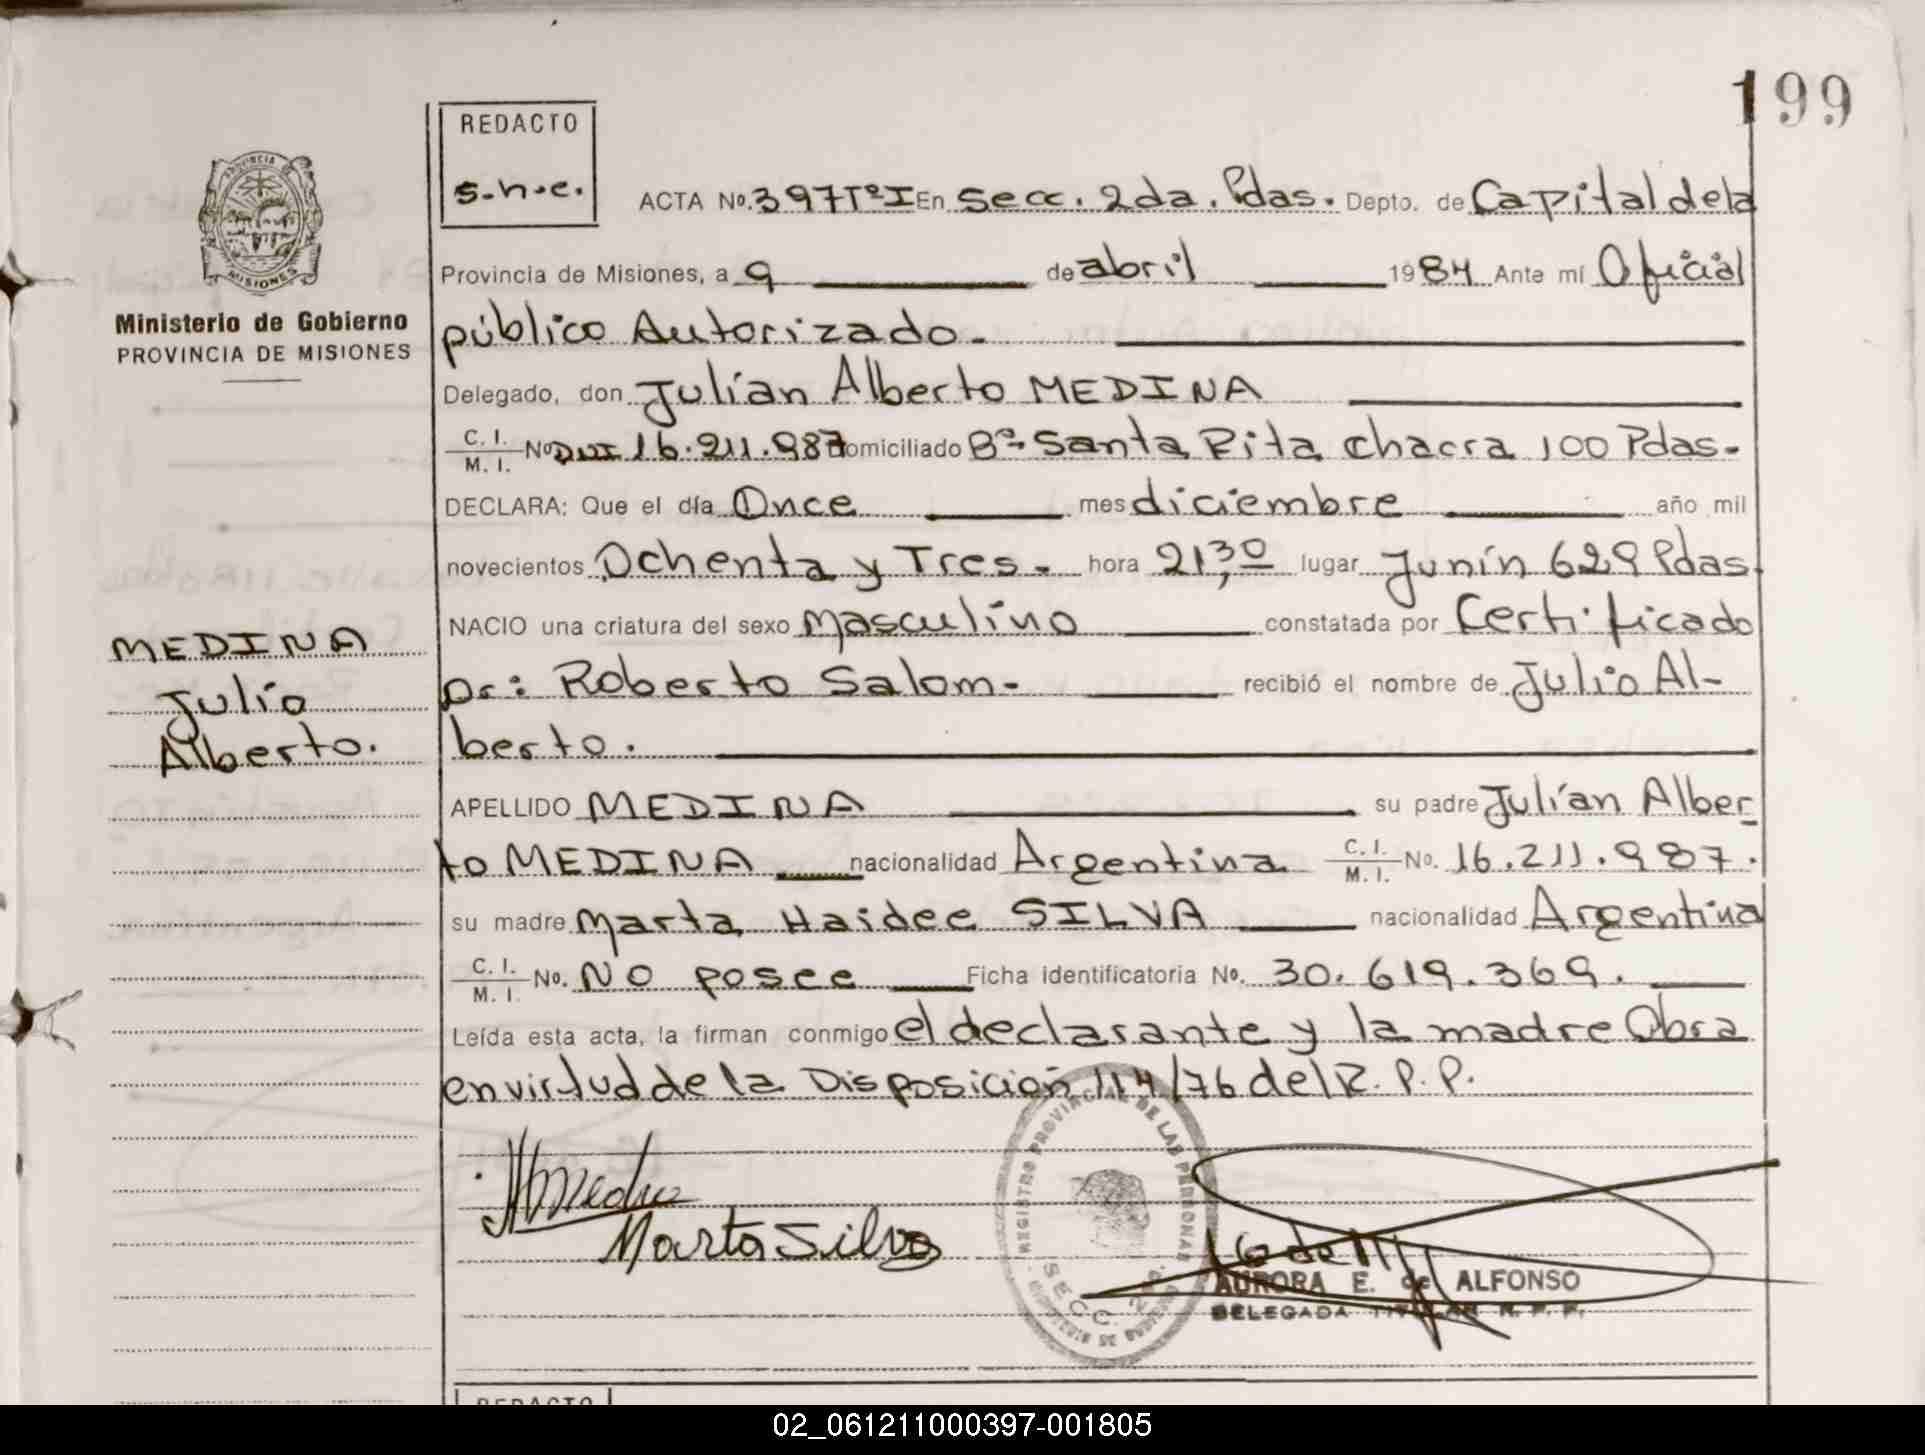 199
REDACTO
s.h.e.
PROVINCIA DE
MISIONES
Ministerio de Gobierno
PROVINCIA DE MISIONES
ACTA Nº. 397 Tº I En Secc. 2da. Pdas. Depto. de Capital de la
Provincia de Misiones, a 9 de abril 1984 Ante mí Oficial
público Autorizado.
Delegado, don Julián Alberto MEDINA
C. I.
M. I. Nº DNI 16.211.987 domiciliado Bº Santa Rita Chacra 100 Pdas.
DECLARA: Que el día Once mes diciembre año mil
novecientos Ochenta y Tres. hora 21,30 lugar Junín 629 Pdas.
NACIO una criatura del sexo Masculino constatada por Certificado
Dr: Roberto Salom. recibió el nombre de Julio Al-
berto.
MEDINA
Julio
Alberto.
APELLIDO MEDINA su padre Julián Alber
to MEDINA nacionalidad Argentina C. I.
M. I. Nº. 16.211.987.
su madre Marta Haidee SILVA nacionalidad Argentina
C. I.
M. I. No. NO posee Ficha identificatoria Nº. 30.619.369.
Leída esta acta, la firman conmigo el declarante y la madre Obra
en virtud de la Disposición 114/76 del R. P. P.
Marta Silva
REGISTRO PROVINCIAL DE LAS PERSONAS
SECC. 2da.
MINISTERIO DE GOBIERNO
AURORA E. de ALFONSO
DELEGADA TITULAR R. P. P.
REDACTO
02_061211000397-001805